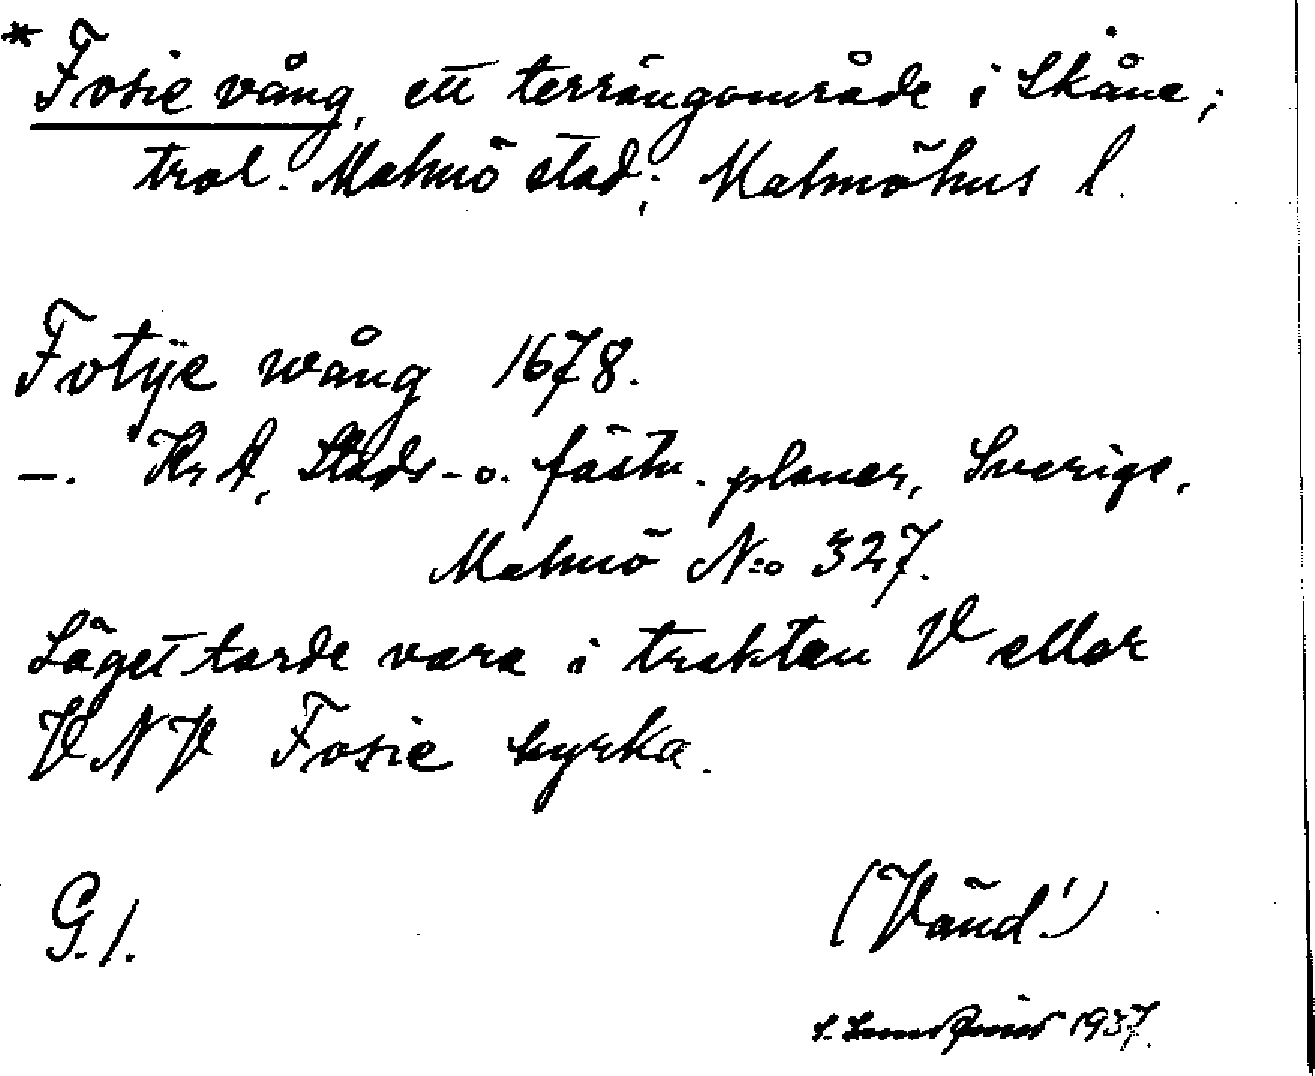 * Fosie vång, ett terrängområde i Skåne;
trol. Malmö stad; Malmöhus l.
Fotÿe wång 1678.
—. KrA, Stads- o. fästn. planer, Sverige,
Malmö N:o 327.
Läget torde vara i trakten V eller
VNV Fosie kyrka.
G. 1.
(Vänd!)
S. 1937.